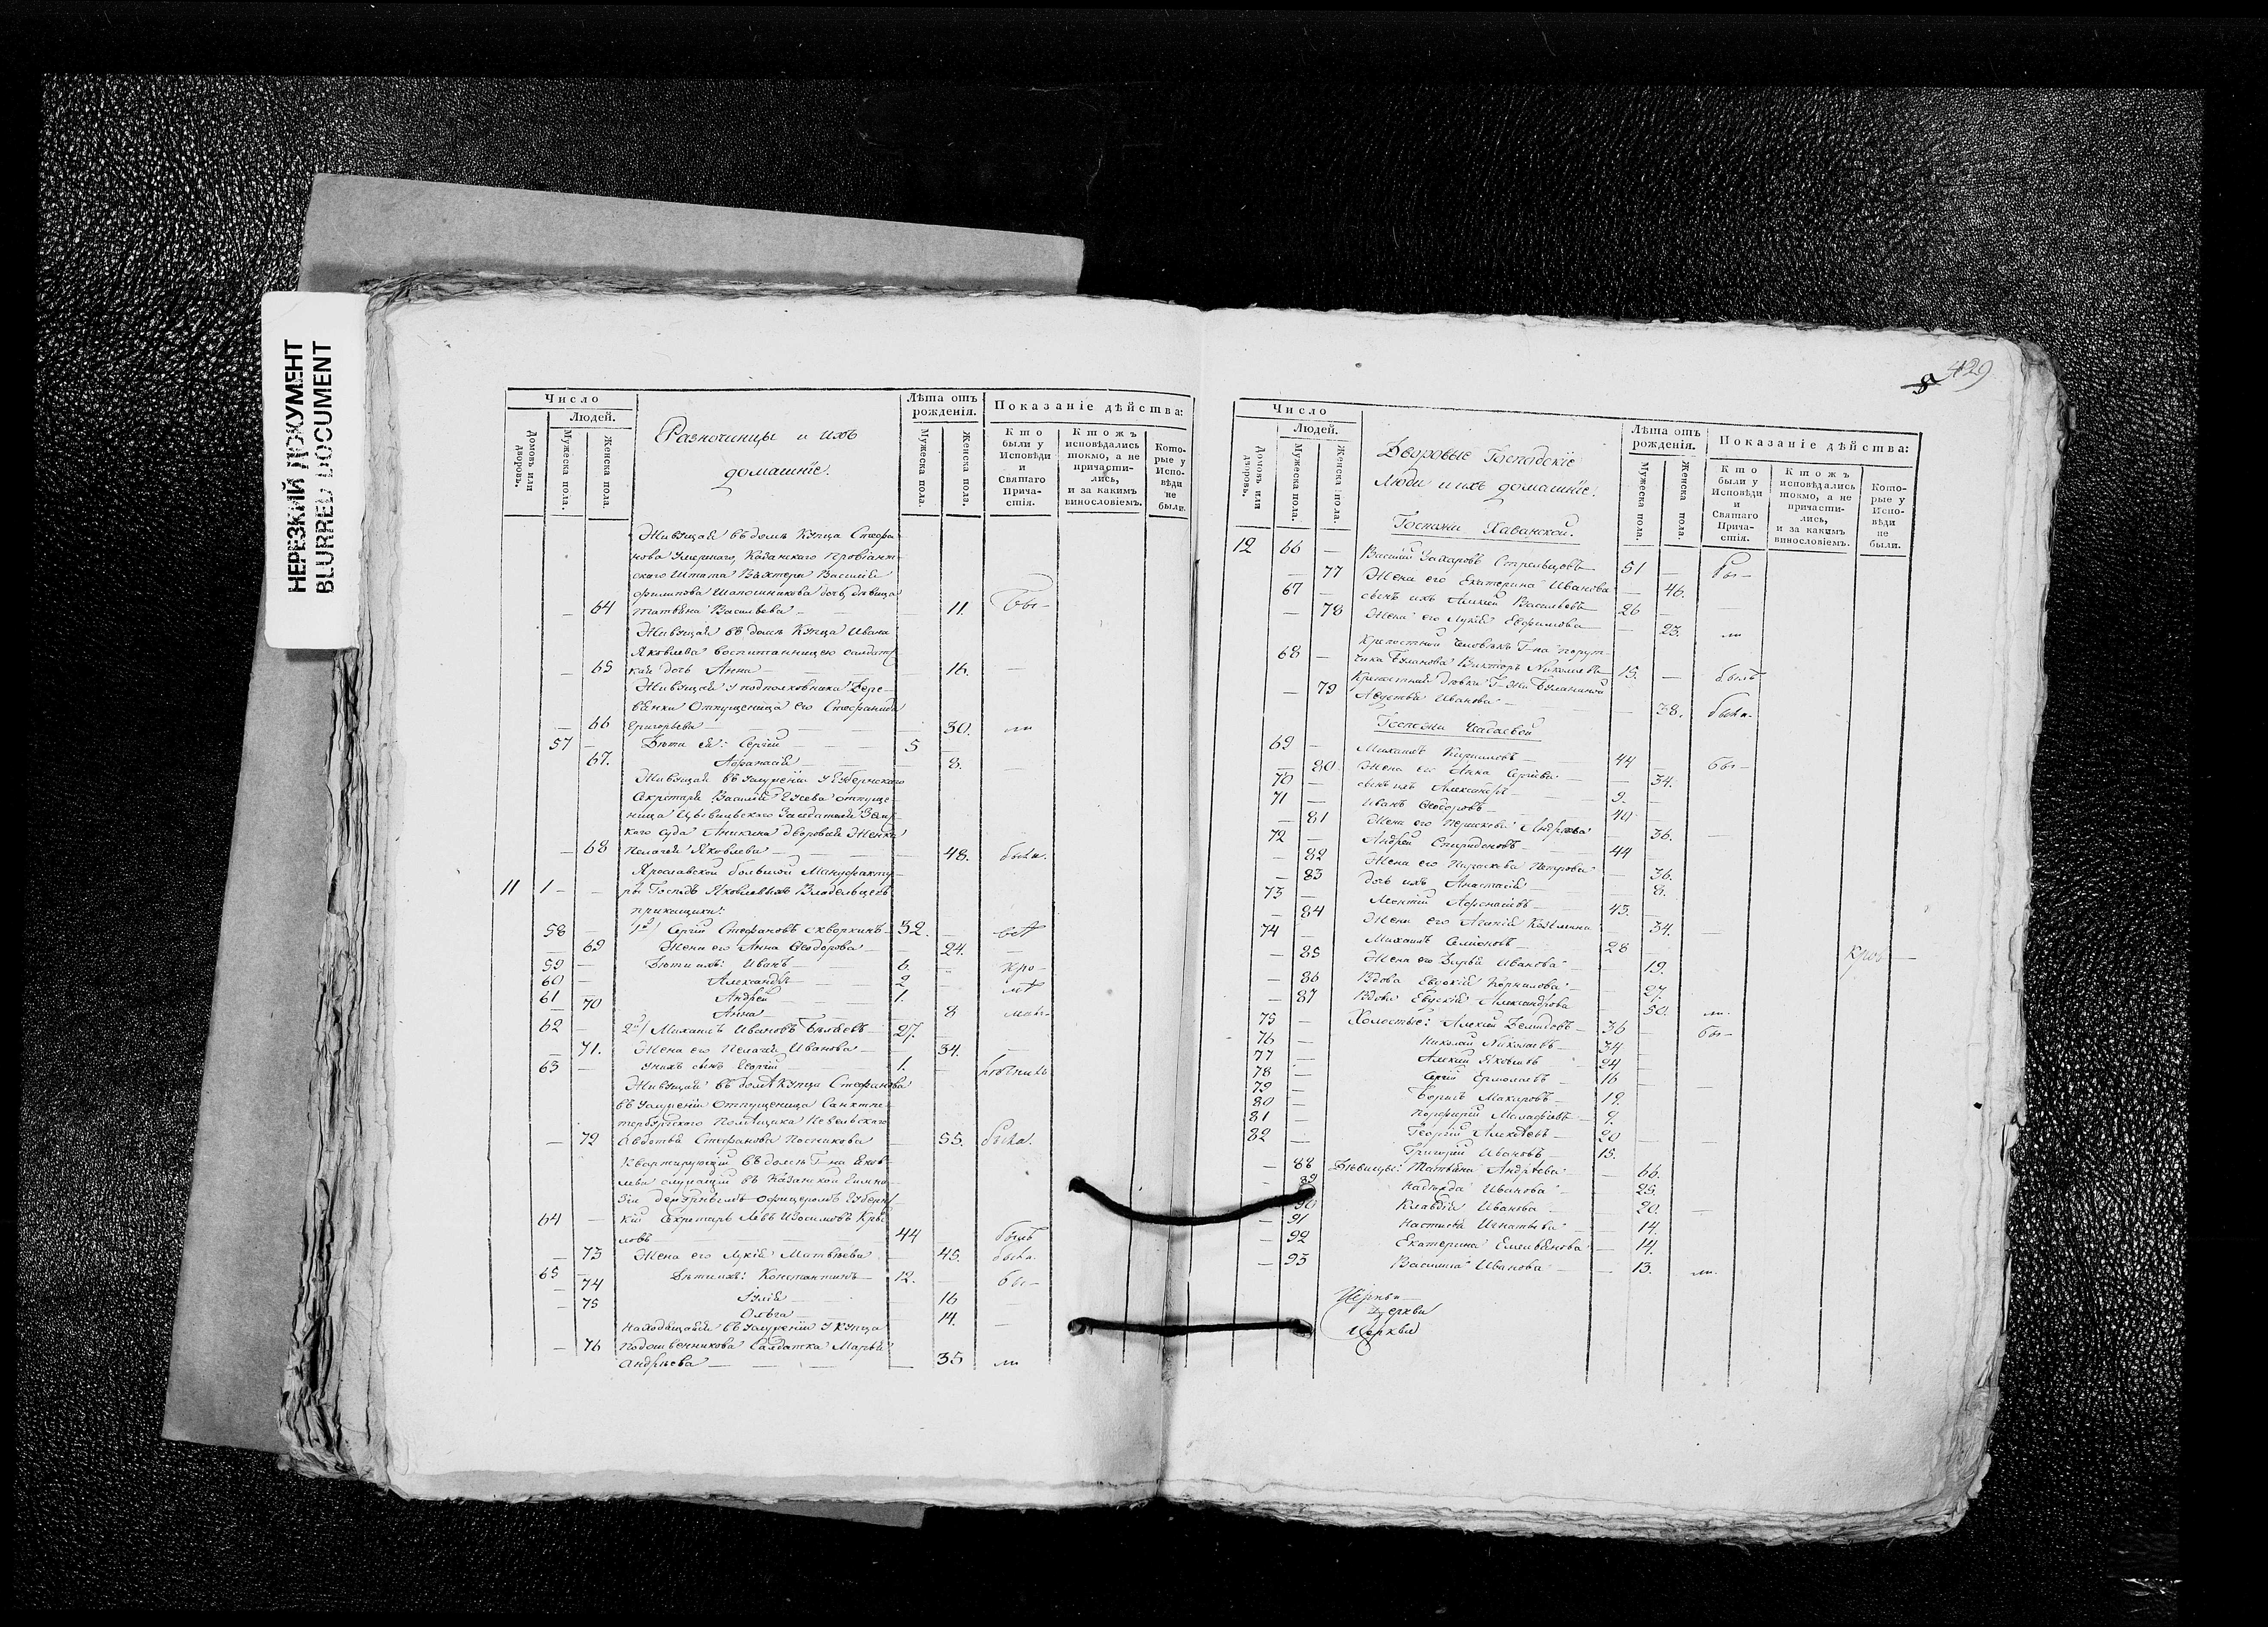 НЕРЕЗКИЙ ДОКУМЕНТ
BLURRED DOCUMENT
Число
Людей.
Домовъ или дворовъ.
Мужеска пола.
Женска пола.
Разночинцы и ихъ
домашніе.
Лѣта отъ рожденія.
Мужеска пола.
Женска пола.
Показаніе дѣйства:
Кто были у Исповѣди и Святаго Причастія.
Ктожъ исповѣдались токмо, а не причастились, и за какимъ винословіемъ.
Которые у Исповѣди не были.
Живущая въ домѣ Купца Стефа
нова умершаго, Казанскаго Провіант
скаго Штата Вахтера Василія
Филипова Шапошникова дочь, дѣвица
— 64 Татьяна Васильева — — 11. бы-
Живущая въ домѣ Купца Ивана
Яковлева воспитанницею салдат
— 65 кая дочь Анна — — 16. —
Живущая у подполковника Дере-
отпущеница его Стефанида
— 66 Григорьева — — 30. ли
57 — Дѣти ея: Сергій — 5 —
67. Афанасія — 8. —
Живущая въ услуженіи у Губернскаго
Секретаря Василія Гусева отпуще-
ница Цывильскаго Засѣдателя Зем
каго суда Аникина дворовая Женка
— 68 Пелагея Яковлева — — 48. была.
Ярославской большой Мануфакту
11 1 — — ры Господъ Яковлевыхъ Владельцевъ
прикащики:
58 — 1й Сергій Стефановъ Скворкинъ — 32. —
— 69 Жена его Анна Ѳеодорова — — 24.
59 — Дѣти ихъ: Иванъ — 6. —
60 — Александръ — 2
61 Андрей — 1.
— 70 Анна — 8
62 — 2й Михаилъ Ивановъ — 27.
— 71. Жена его Пелагея Иванова — — 34. —
63 — у нихъ сынъ Георгій 1. —
Живущая въ домѣ Купца Стефанова
въ услуженіи отпущеница Санктпе
тербургскаго Помѣщика
— 72 Авдотья Стефанова Постникова — 55. была.
Квартирующій въ домѣ Г-на Яков-
лева служащій въ Казанской Гимна-
зіи офицеромъ Губернс
64 — кій Секретарь Левъ Изосимовъ Кры
ловъ — 44 былъ
— 73 Жена его Лукія Матвѣева — 45. была.
65 — Дѣти ихъ: Константинъ — 12. — бы-
— 74 Юлія — 16 —
— 75 Ольга — 14. —
Находящаяся въ услуженіи у Купца
— 76 Подошвенникова Салдатка Марья
Андрѣева — — — — 35 ли
8 429
Число
Людей.
Домовъ или дворовъ.
Мужеска пола.
Женска пола.
Дворовые Господскіе
люди и ихъ домашніе.
Лѣта отъ рожденія.
Мужеска пола.
Женска пола.
Показаніе дѣйства:
Кто были у Исповѣди и Святаго Причастія.
Ктожъ исповѣдались токмо, а не причастились, и за какимъ винословіемъ.
Которые у Исповѣди не были.
Госпожи Хаванской.
12 66 — Василій Захаровъ Стрельцовъ — 51 — бы-
— 77 Жена его Екатерина Иванова — 46.
67 — сынъ ихъ Алексѣй Васильевъ — 26 —
— 78 Жена его Лукія Евфимова — 23. ли
Крѣпостный человѣкъ Г-на порут-
68 — чика Буланова Викторъ Николаевъ 15. — былъ
Крѣпостная дѣвка Г-жи Буланиной
— 79 Авдотья Иванова — — 38. была.
Госпожи Чадаевой
69 — Михаилъ Кириловъ — 44 — бы-
— 80 Жена его Анна Сергѣева — — 34.
70 — сынъ ихъ Александръ — 9. —
71 — Иванъ Ѳеодоровъ — 40 —
— 81 Жена его Парасковья Андрѣева — 36. —
72 — Андрей Спиридоновъ — 44 —
— 82 Жена его Параскева Петрова — 36.
— 83 дочь ихъ Анастасія — 8.
73 — Леонтій Афанасьевъ — 43. —
— 84 Жена его Агапія Козьмина — 34. —
74 — Михаилъ Семіоновъ — 28
— 85 Жена его Дарья Иванова — — 19.
— 86 Вдова Евдокія Корнилова — — 27.
— 87 Вдова Евдокія Александрова — 50. ли.
75 — Холостые: Алексѣй Демидовъ — 36 — бы-
76 — Николай Николаевъ — 34 —
77 — Алексѣй Яковлевъ — 24 —
78 — Сергій Ермолаевъ — 16 — —
79 — Борисъ Макаровъ — 19.
80 — Порфирій Малафѣевъ — 9.
81 — Георгій Алексѣевъ — 20 —
82 — Григорій Ивановъ — 15.
— 88 Дѣвицы: Татьяна Андрѣева — — 66.
— 89 Надежда Иванова — — 25.
90 Клавдія Иванова — — 20. —
— 91 Настасья Игнатьева — — 14.
— 92 Екатерина Емельянова — 14.
— 93 Василиса Иванова — — 13. ли.
Церкви
Церкви